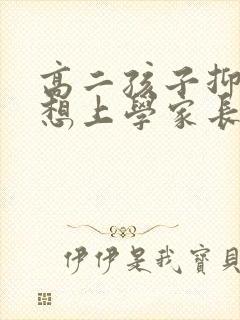 高二孩子抑
想上學家長
伊伊是我寶貝